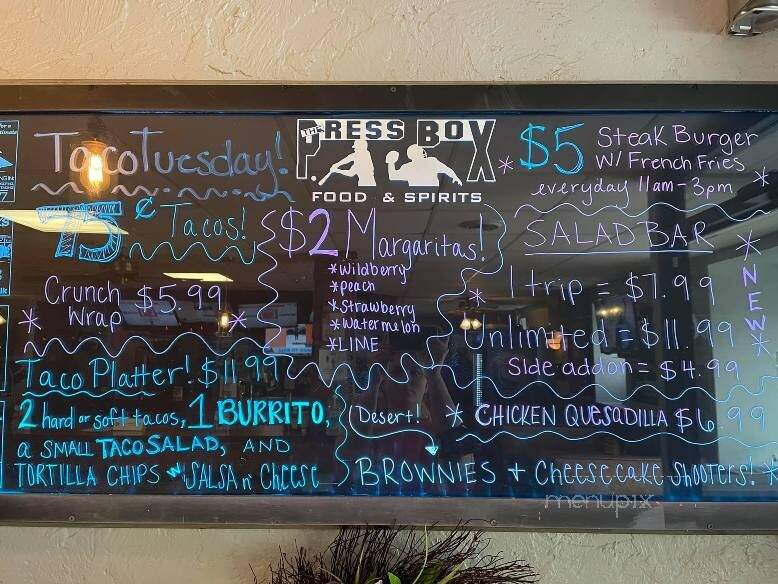 Taco Tuesday!
75¢ Tacos!
* Crunch Wrap $5.99 *
Taco Platter! $11.99
2 hard or soft tacos, 1 BURRITO,
a SMALL TACO SALAD, AND
TORTILLA CHIPS w/ SALSA n' CHEESE
THE PRESS BOX
FOOD & SPIRITS
$2 Margaritas!
*Wildberry
*peach
*Strawberry
*Watermelon
*LIME
Desert!
BROWNIES + Cheesecake Shooters! *
* $5 Steak Burger
W/ French Fries
everyday 11am-3pm *
SALAD BAR
* NEW *
* 1 trip = $7.99
Unlimited = $11.99
Side addon = $4.99
* CHICKEN QUESADILLA $6.99
menupix